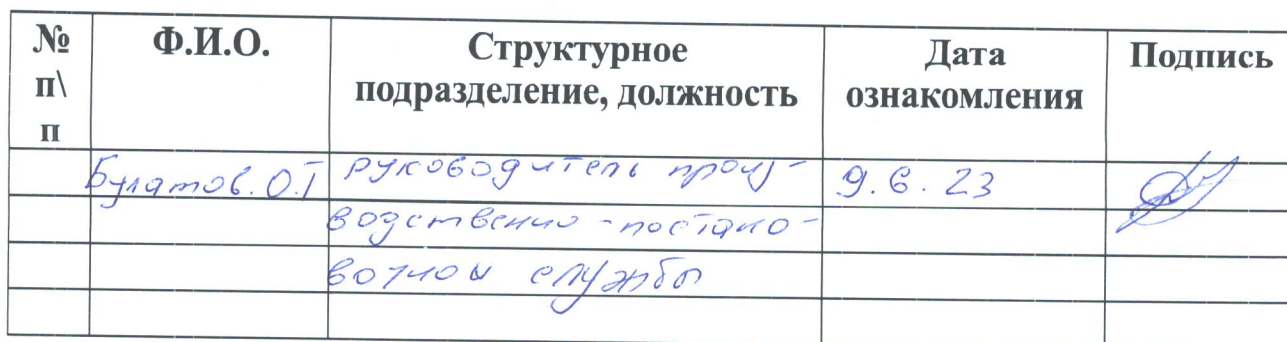 № п\п Ф.И.О. Структурное подразделение, должность Дата ознакомления Подпись
Булатов.О.Г руководитель произ- 9.6.23
водственно-постано-
вочной службы